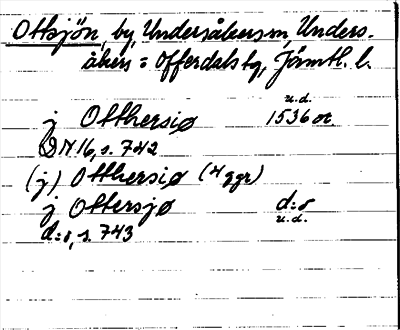 Ottsjön, by, Undersåkers sn, Unders-
åkers o Offerdals tg, Jämtl. l.
u.d.
j Otthersiø 1536 or.
DN 16, s. 742
(j) Otthersiø (4 ggr)
j Ottersjø d:o
u.d.
d:o, s. 743